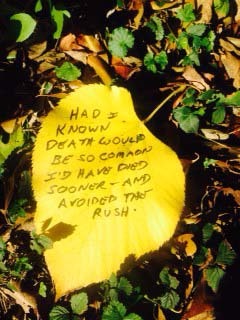 HAD I
KNOWN
DEATH WOULD
BE SO COMMON
I'D HAVE DIED
SOONER - AND
AVOIDED THE
RUSH.